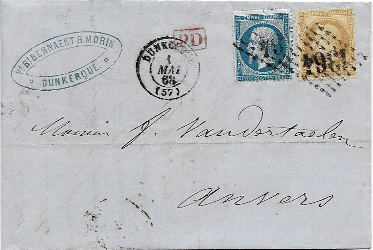 Vᵉ BIBERNAEST & MORIN
DUNKERQUE
DUNKERQUE
1
MAI
68
(57)
PD
1364
Monsieur J. Vanderlaelen
Anvers